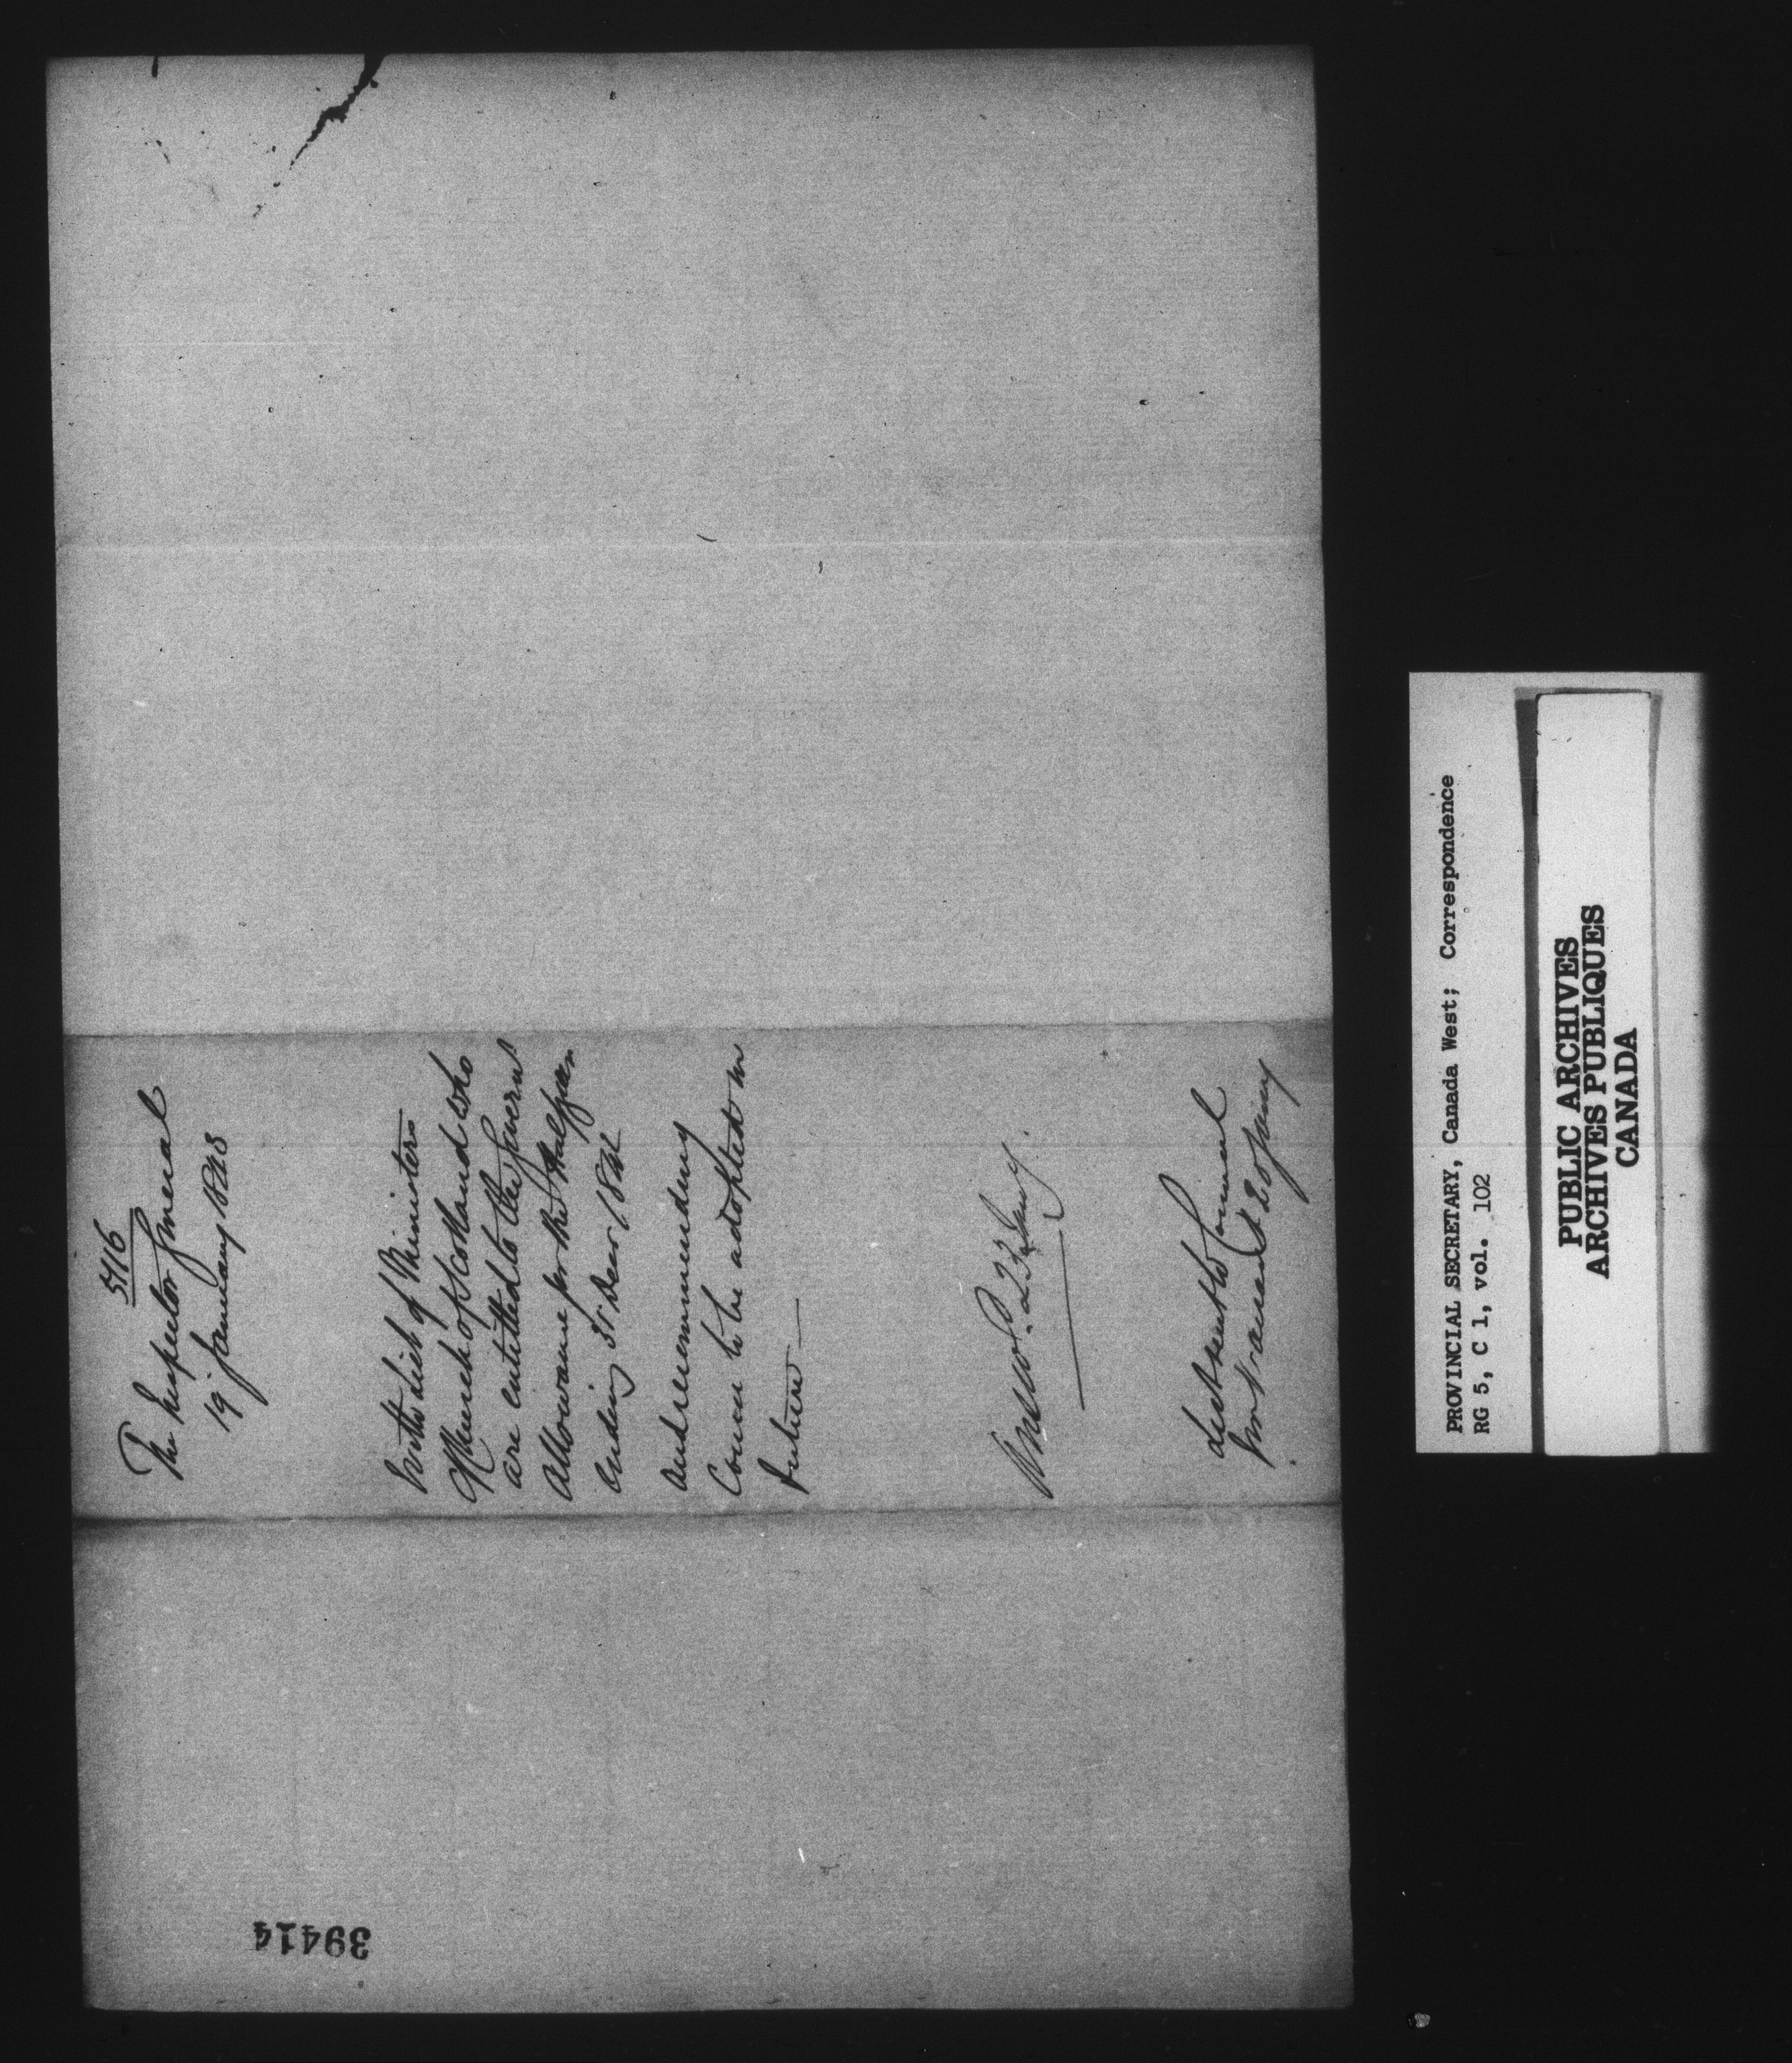 5716
The Inspector General
19 January 1843
With List of Ministers
of Church of Scotland who
are entitled to the Governt
Allowance for the Half year
ending 31 Decr 1842
and recommending
Course to be adopted in
future
23 Jany.
List sent to Council
20 Jany
39414
PROVINCIAL SECRETARY, Canada West; Correspondence
RG 5, C 1, vol. 102
PUBLIC ARCHIVES
ARCHIVES PUBLIQUES
CANADA